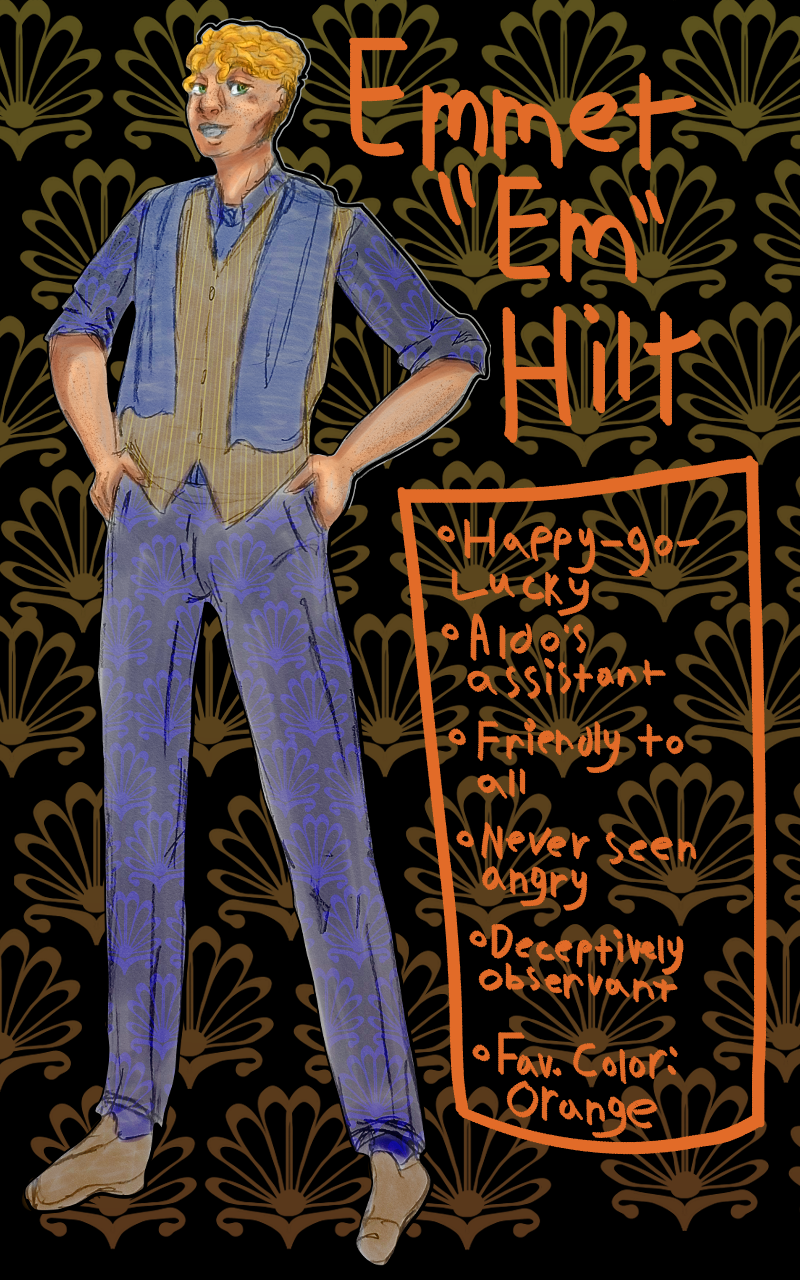 Emmet
"Em"
Hilt
°Happy-go-
Lucky
°Aldo's
assistant
°Friendly to
all
°Never seen
angry
°Deceptively
observant
°Fav. Color:
Orange